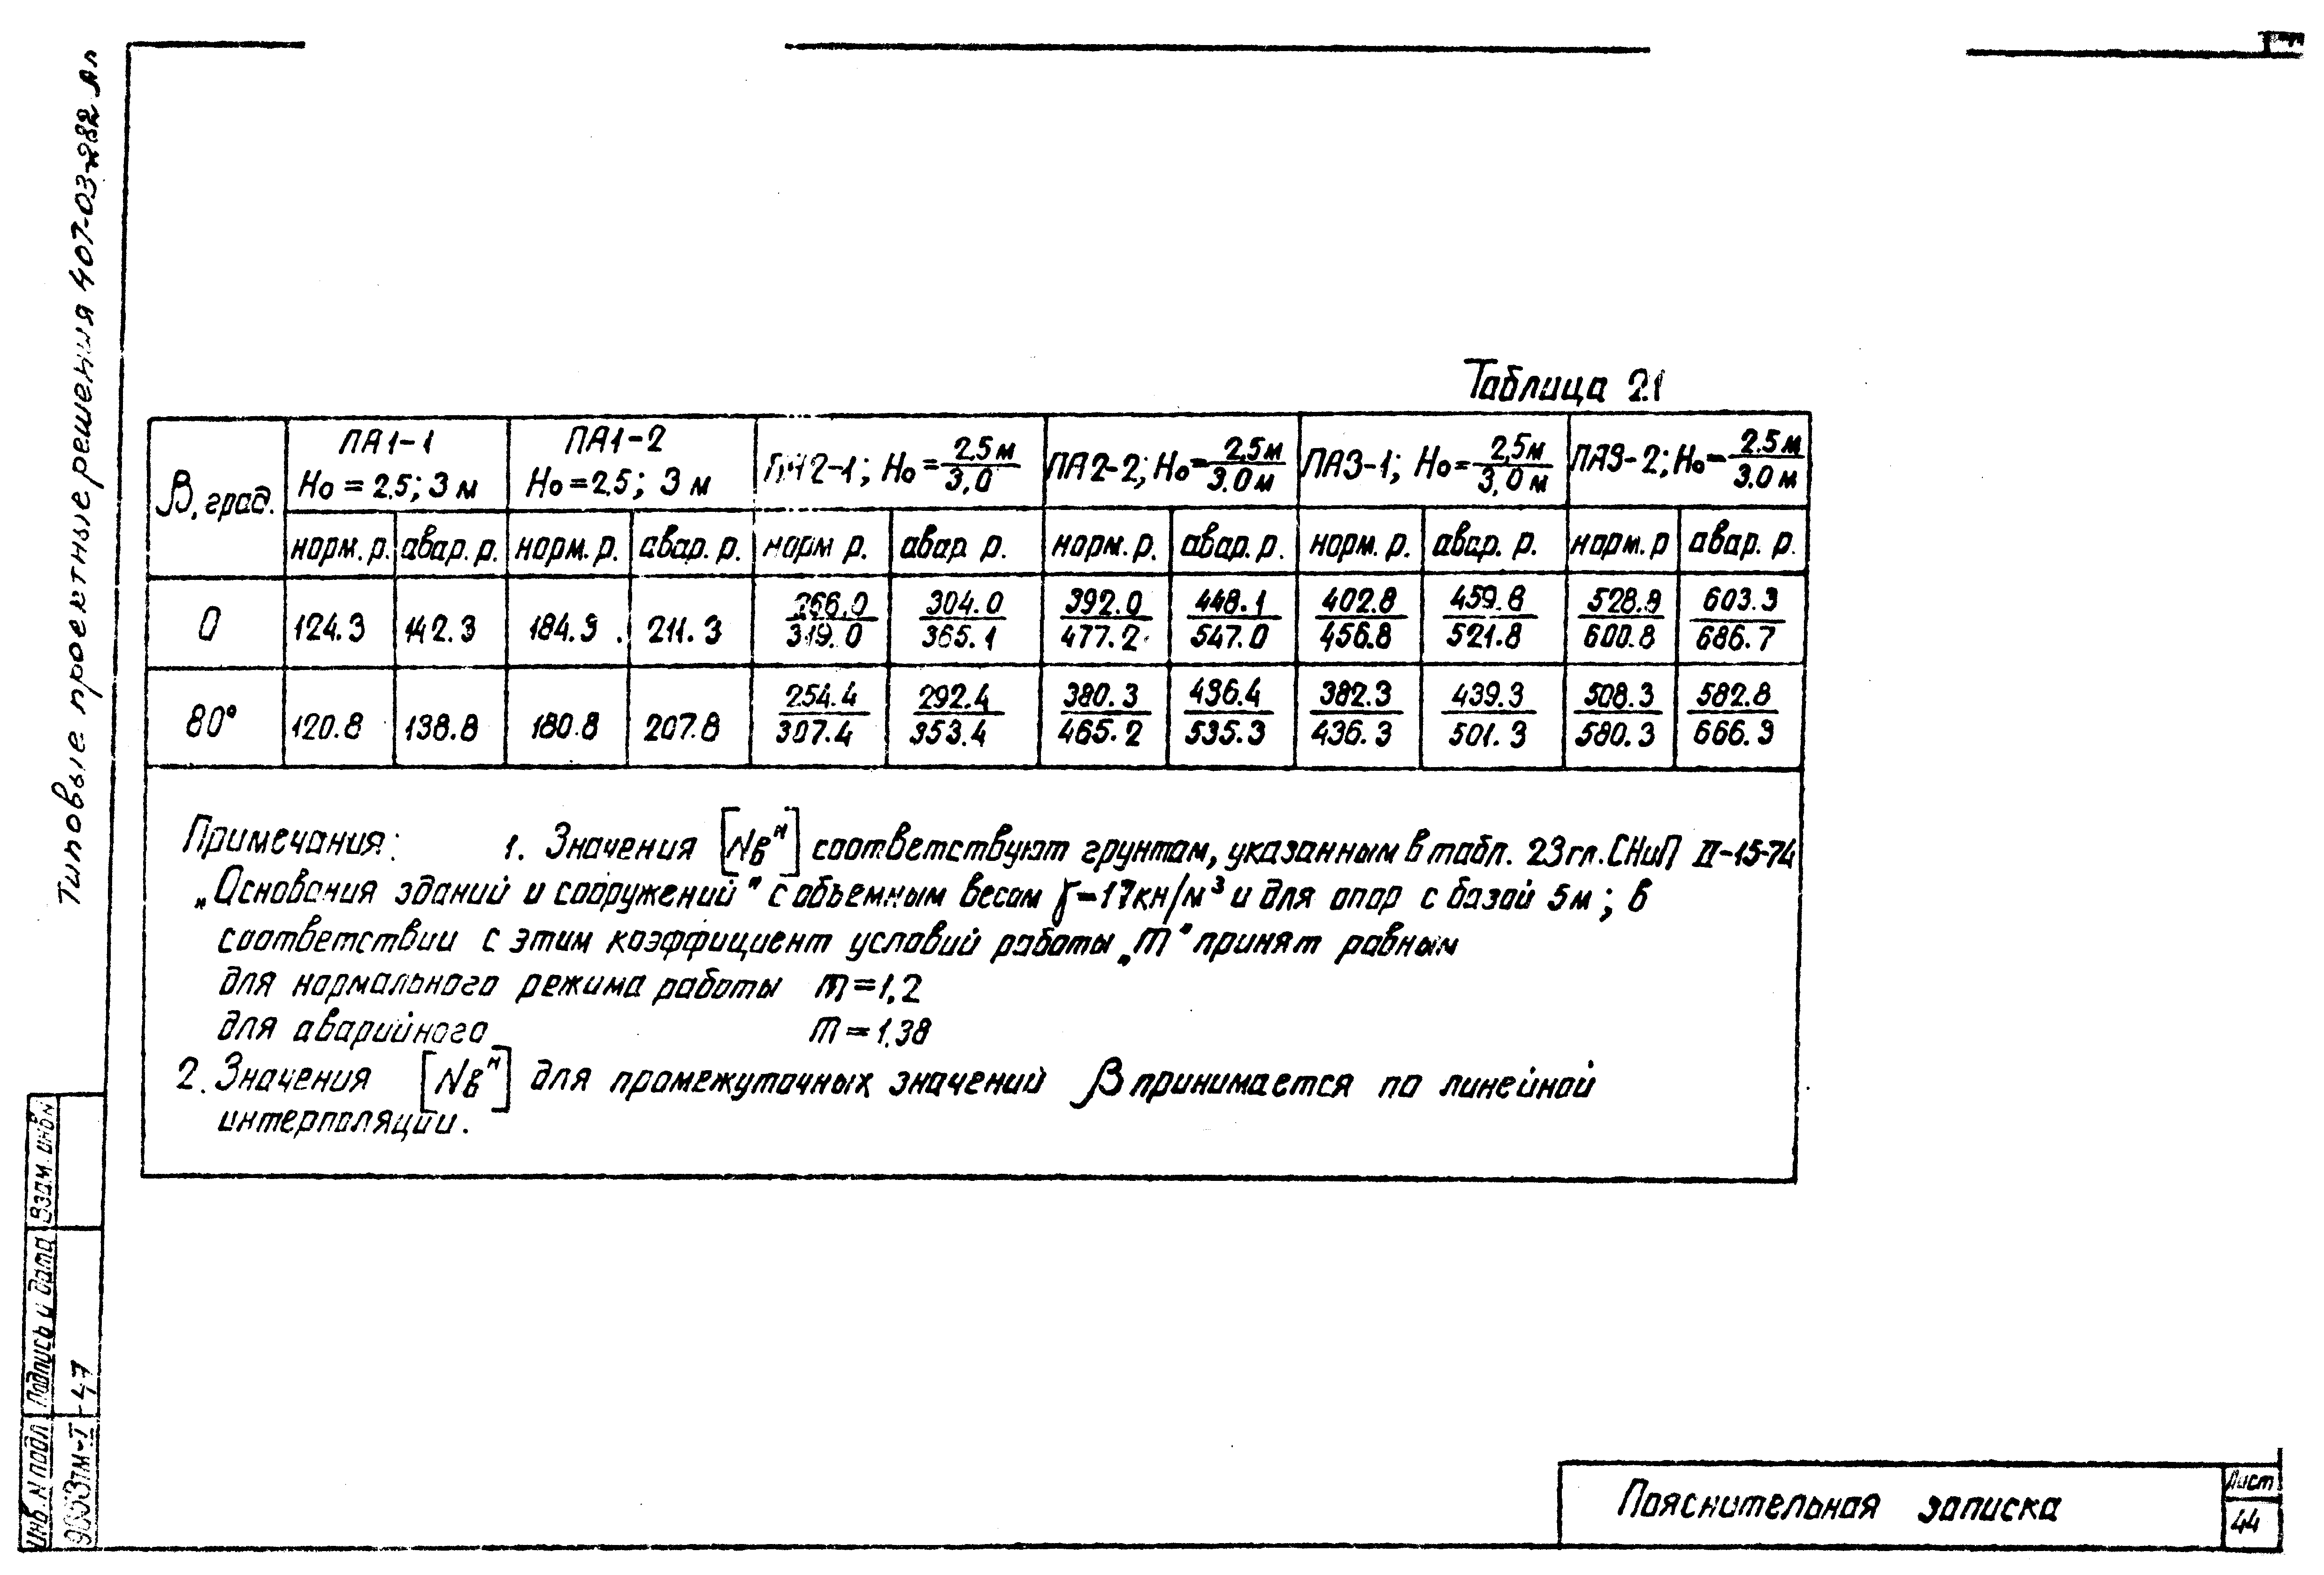 Типовые проектные решения 407-03-282 Ал
Таблица 21
β, град. ПА1-1 Н₀ = 2.5; 3 м ПА1-2 Н₀ = 2.5; 3 м ПА2-1; Н₀ = 2.5 м / 3,0 ПА2-2; Н₀ = 2,5м / 3.0 м ПА3-1; Н₀ = 2,5м / 3,0 м ПА3-2; Н₀ = 2.5 м / 3.0 м
норм. р. авар. р. норм. р. авар. р. норм р. авар р. норм. р. авар. р. норм. р. авар. р. норм. р авар. р.
0 124.3 142.3 184.9 211.3 266,0 / 319.0 304.0 / 365.1 392.0 / 477.2 448.1 / 547.0 402.8 / 456.8 459.8 / 521.8 528.9 / 600.8 603.3 / 686.7
80° 120.8 138.8 180.8 207.8 254.4 / 307.4 292.4 / 353.4 380.3 / 465.2 436.4 / 535.3 382.3 / 436.3 439.3 / 501.3 508.3 / 580.3 582.8 / 666.9
Примечания: 1. Значения [Nвⁿ] соответствуют грунтам, указанным в табл. 23 гл. СНиП II-15-74
„Основания зданий и сооружений" с объемным весом γ=17кн/м³ и для опор с базой 5м; в
соответствии с этим коэффициент условий работы „m" принят равным
для нормального режима работы m=1,2
для аварийного m=1.38
2. Значения [Nвⁿ] для промежуточных значений β принимается по линейной
интерполяции.
Взам. инв N
Подпись и дата
Инв. N подл
Пояснительная записка
Лист
44